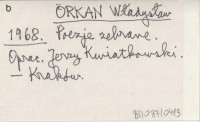 ORKAN Władysław
1968. Poezje zebrane.
Oprac. Jerzy Kwiatkowski.
— Kraków.